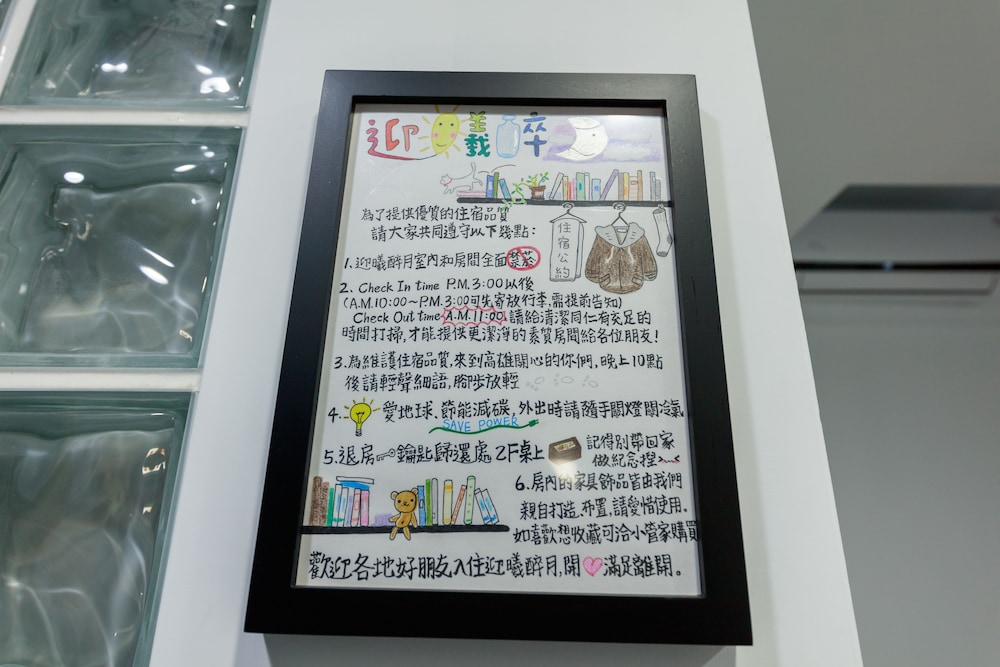 迎羲卒
為了提供優質的住宿品質
請大家共同遵守以下幾點:
住宿公約
1. 迎曦醉月室內和房間全面禁菸
2. Check In time P.M.3:00以後
(A.M.10:00~P.M.3:00可先寄放行李,需提前告知)
Check Out time A.M.11:00,請給清潔同仁有充足的
時間打掃,才能提供更潔淨的素質房間給各位朋友!
3.為維護住宿品質,來到高雄開心的你們,晚上10點
後請輕聲細語,腳步放輕
4. 愛地球、節能減碳,外出時請隨手關燈關冷氣
SAVE POWER
5.退房 鑰匙歸還處 2F桌上
記得別帶回家
做紀念捏>_<
6.房內的家具飾品皆由我們
親自打造、布置,請愛惜使用。
如喜歡想收藏可洽小管家購買
歡迎各地好朋友入住迎曦醉月,開♡滿足離開。